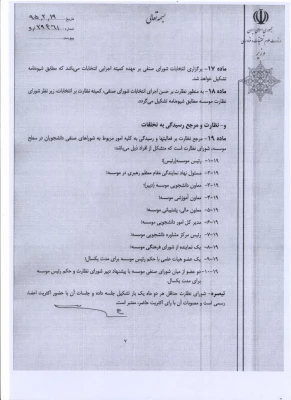 بسمه تعالی
تاریخ ۹۵/۲/۱۹
شماره
پیوست
جمهوری اسلامی ایران
ماده ۱۷- برگزاری انتخابات شورای صنفی بر عهده کمیته اجرایی انتخابات می‌باشد که مطابق شیوه‌نامه
تشکیل خواهد شد.
ماده ۱۸- به منظور نظارت بر حسن اجرای انتخابات شورای صنفی، کمیته نظارت بر انتخابات، زیر نظر شورای
نظارت موسسه مطابق شیوه‌نامه تشکیل می‌گردد.
و- نظارت و مرجع رسیدگی به تخلفات
ماده ۱۹- مرجع نظارت بر فعالیتها و رسیدگی به کلیه امور مربوط به شوراهای صنفی دانشجویان در سطح
موسسه، شورای نظارت است که متشکل از افراد ذیل می‌باشد:
۱-۱۹- رئیس موسسه(رئیس)
۲-۱۹- مسئول نهاد نمایندگی مقام معظم رهبری در موسسه؛
۳-۱۹- معاون دانشجویی موسسه (دبیر)؛
۴-۱۹- معاون آموزشی موسسه؛
۵-۱۹- معاون مالی، پشتیبانی موسسه؛
۶-۱۹- مدیر کل امور دانشجویی موسسه؛
۷-۱۹- رئیس مرکز مشاوره دانشجویی موسسه؛
۸-۱۹- یک نماینده از شورای فرهنگی موسسه؛
۹-۱۹- یک عضو هیات علمی با حکم رئیس موسسه برای مدت یکسال؛
۱۰-۱۹- دو عضو از میان شورای صنفی موسسه با پیشنهاد دبیر شورای نظارت و حکم رئیس موسسه
برای مدت یکسال؛
تبصره- شورای نظارت حداقل هر دو ماه یک بار تشکیل جلسه داده و جلسات آن با حضور اکثریت اعضا
رسمی است و مصوبات آن با رای اکثریت حاضر، معتبر است.
۷